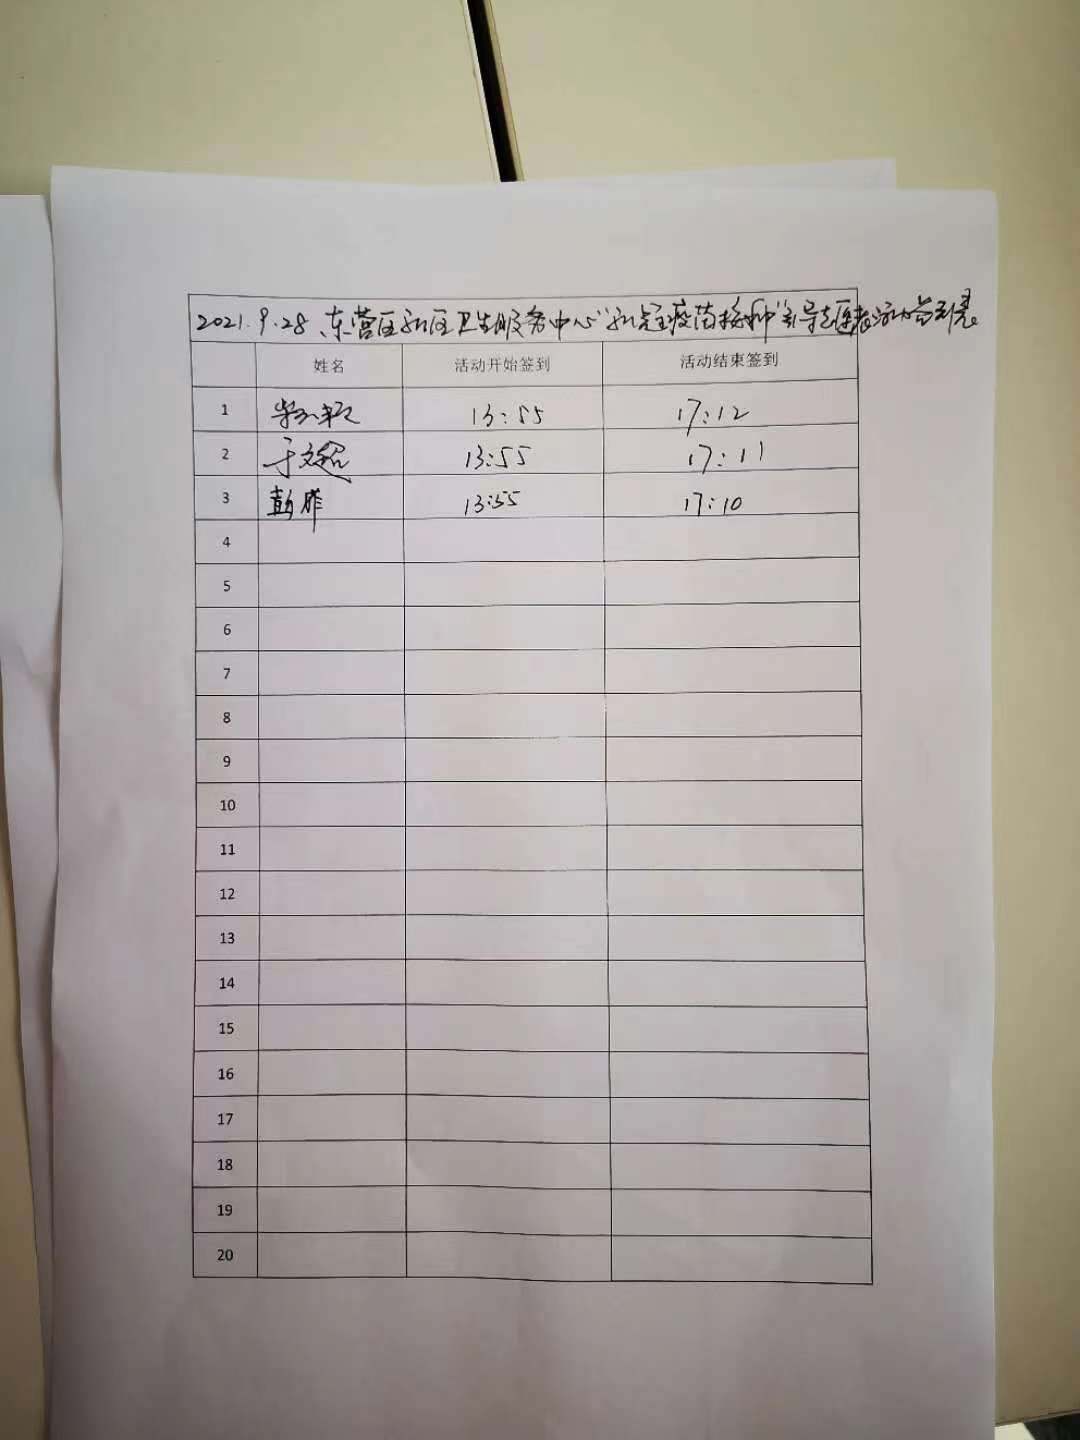 2021.9.28 东营区新区卫生服务中心"新冠疫苗接种"引导志愿活动签到表
姓名 活动开始签到 活动结束签到
1 13:55 17:12
2 于文超 13:55 17:11
3 13:55 17:10
4
5
6
7
8
9
10
11
12
13
14
15
16
17
18
19
20